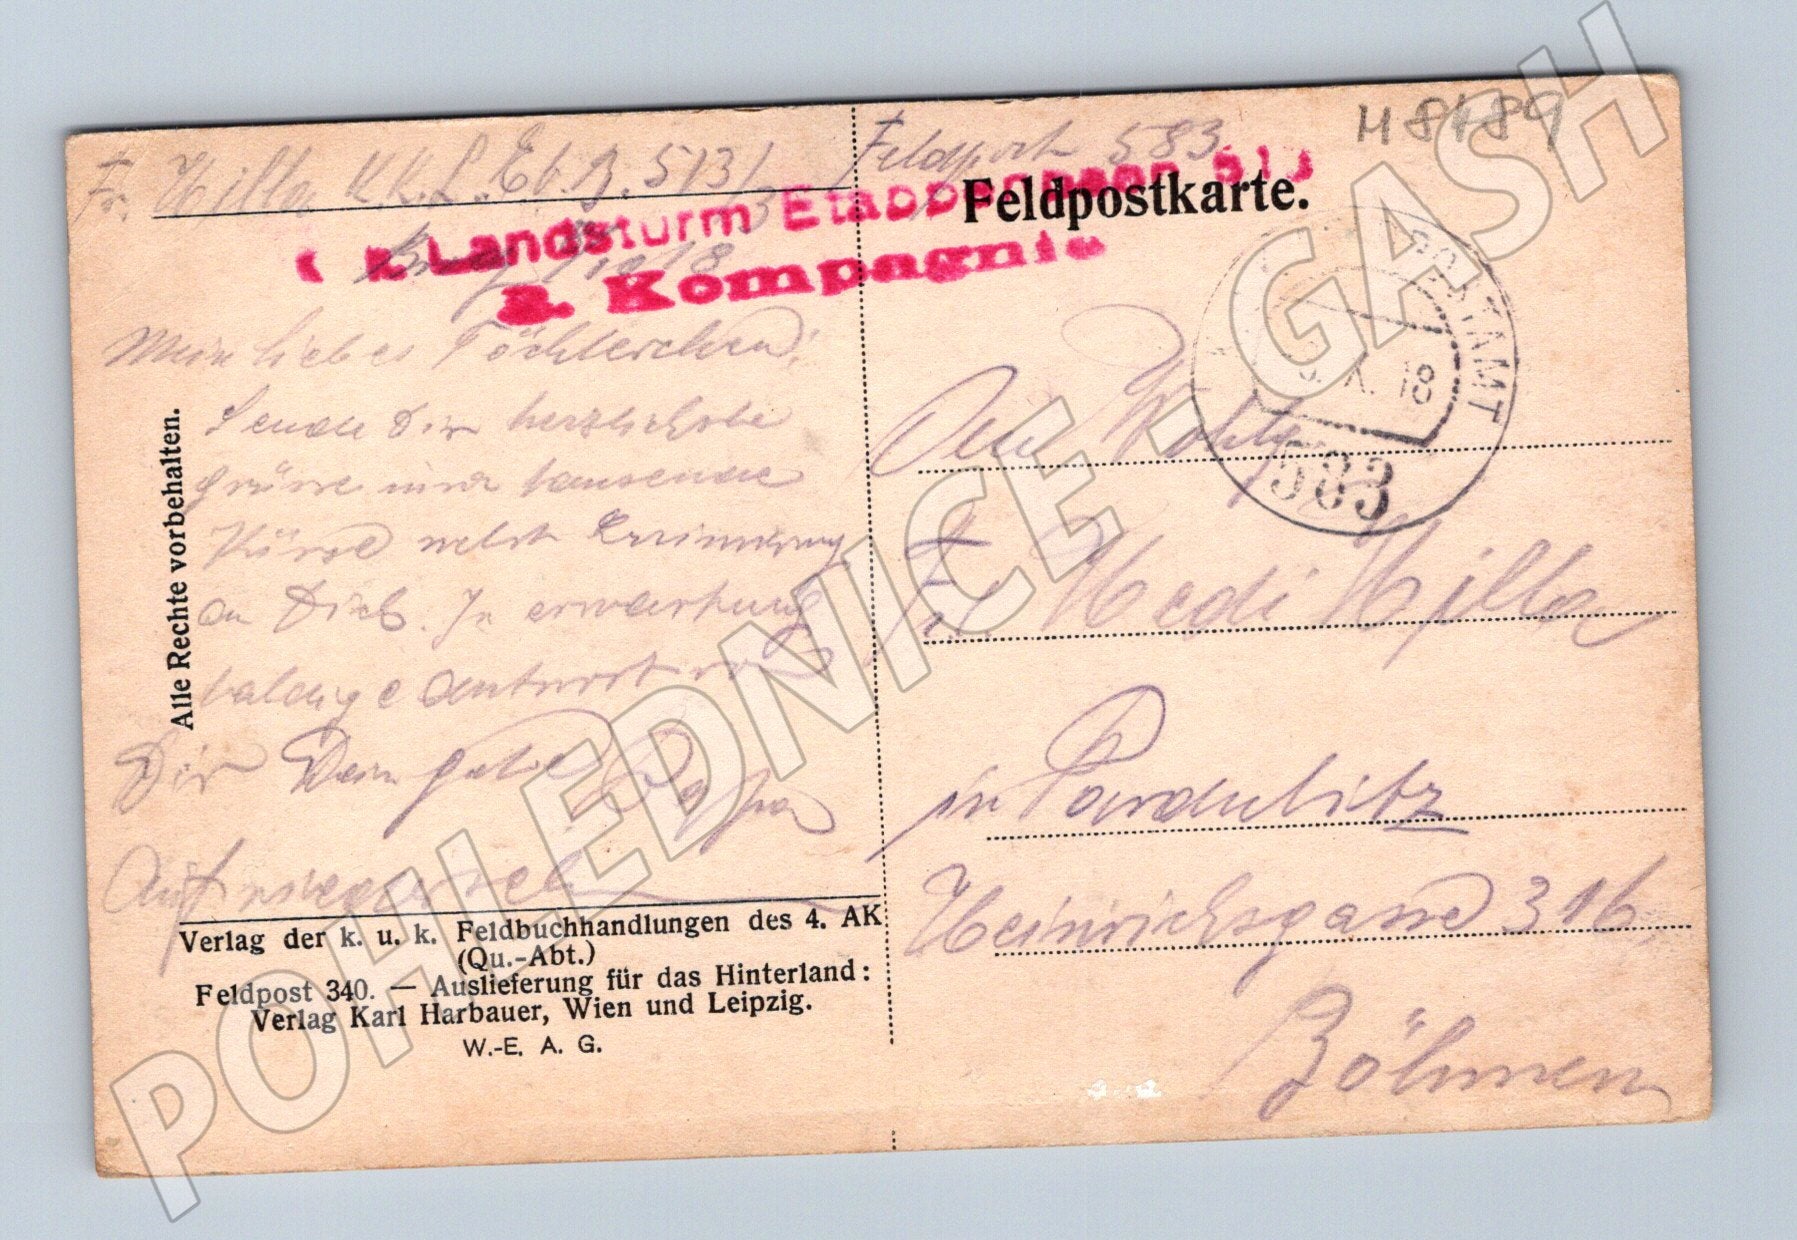 Fr. Hilla K.K.L. Et. B. 513/3
Feldpost 583
H 8489
Feldpostkarte.
k Landsturm Etappenbaon 513
3. Kompagnie
1918
POSTAMT
X. 18
583
Mein liebes Töchterchen!
Sende Dir herzlichste
Grüsse und tausende
Küsse nebst Erinnerung
an Dich. In erwartung
baldige antwort
Dir Dein guter Pappa
Auf wiedersehen
An Wohlg.
Frl. Hedi Hilla
in Pardubitz
Heinrichsgasse 316.
Böhmen
Alle Rechte vorbehalten.
Verlag der k. u. k. Feldbuchhandlungen des 4. AK
(Qu.-Abt.)
Feldpost 340. — Auslieferung für das Hinterland:
Verlag Karl Harbauer, Wien und Leipzig.
W.-E. A. G.
POHLEDNICE - GASH